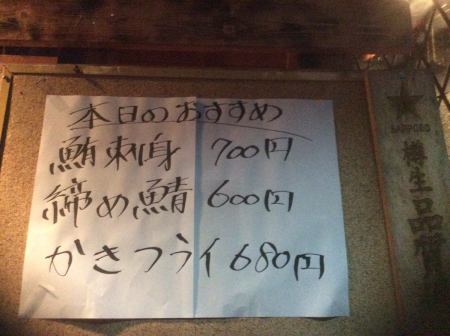 本日のおすすめ
鮪刺身 700円
締め鯖 600円
かきフライ 680円
SAPPORO
樽生品質